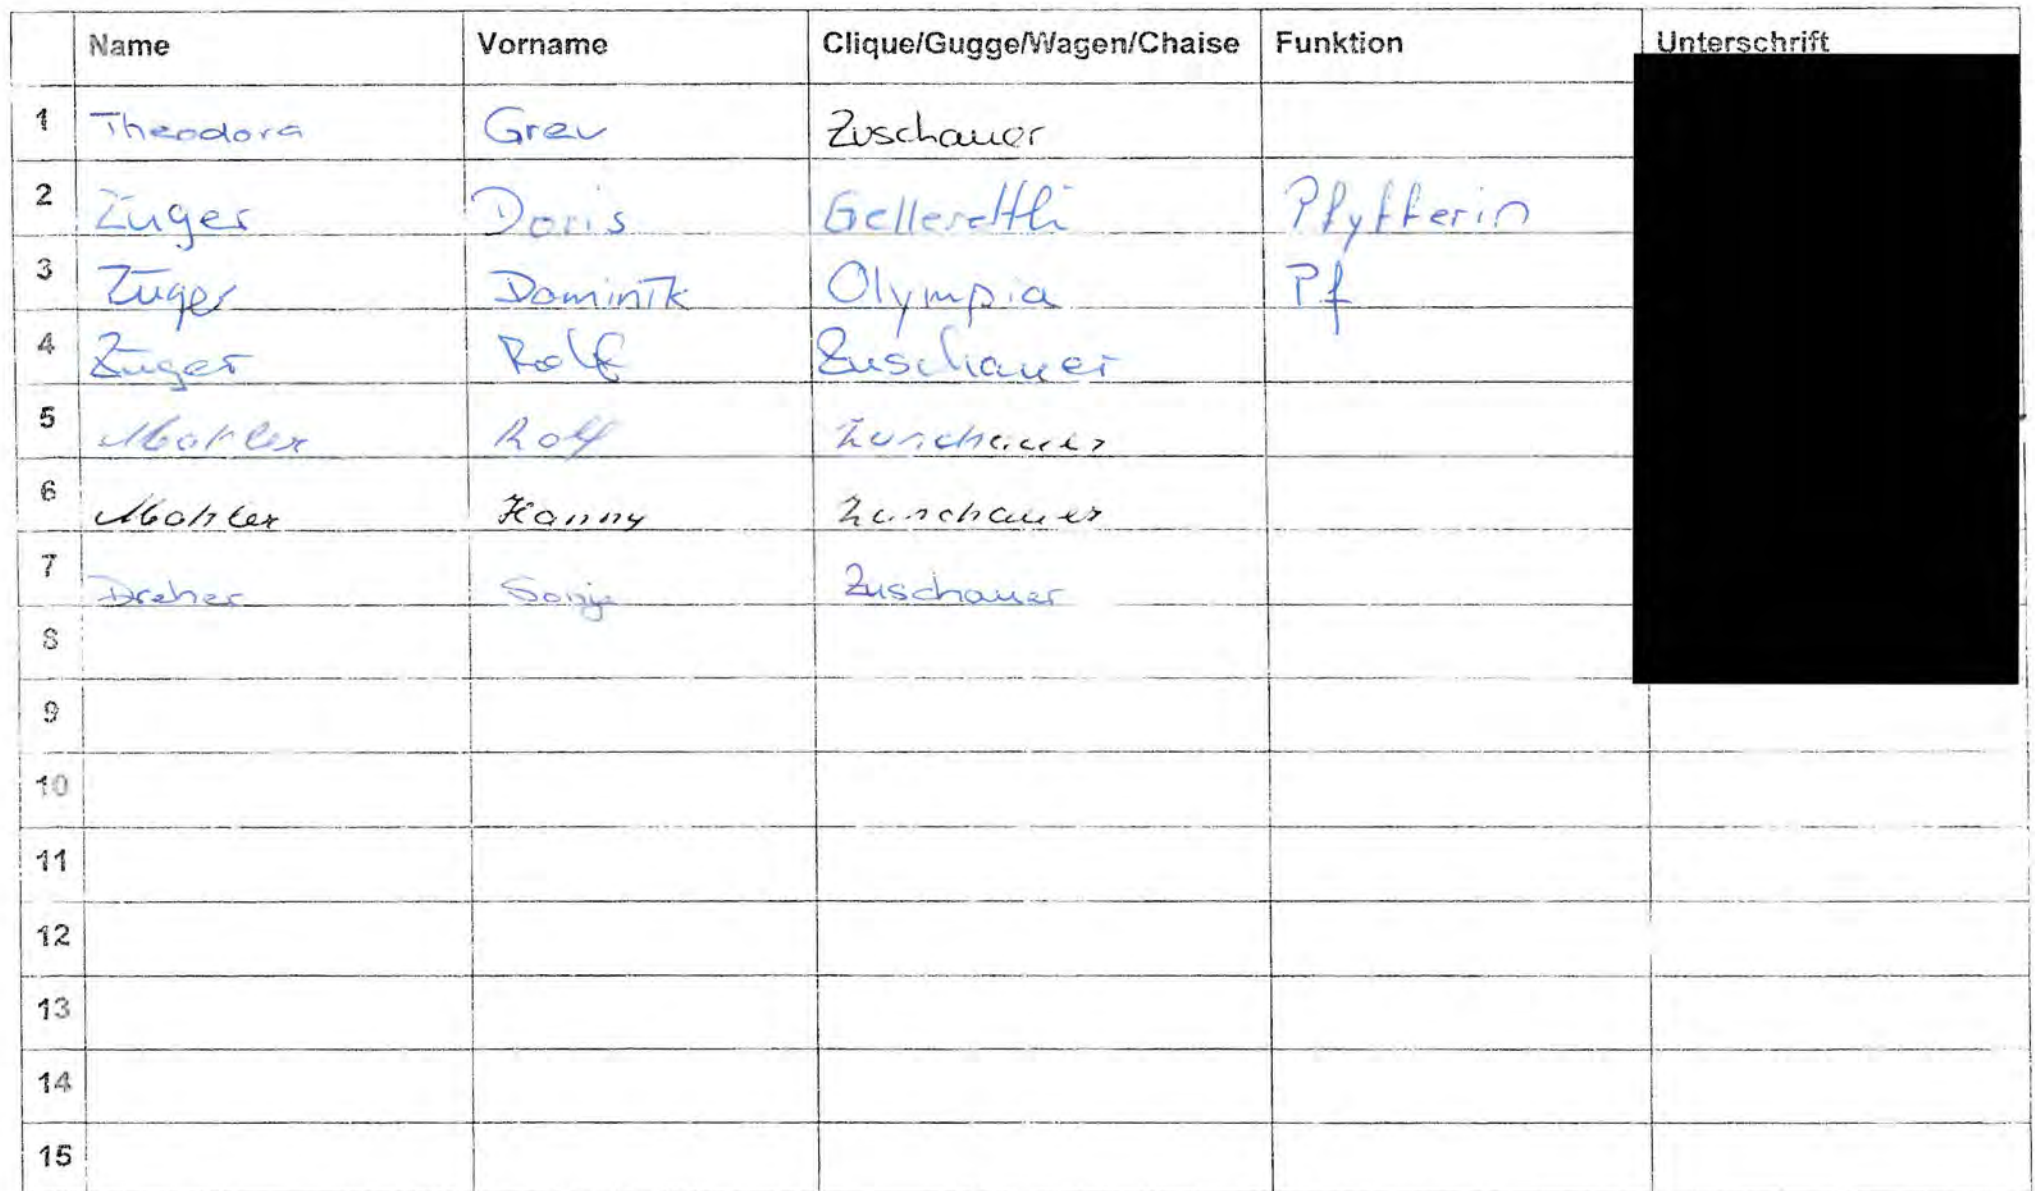 Name Vorname Clique/Gugge/Wagen/Chaise Funktion Unterschrift
1 Theodora Grev Zuschauer
2 Züger Doris Gellerettli Pfyfferin
3 Züger Dominik Olympia Pf
4 Züger Rolf Zuschauer
5 Mahler Rolf Zuschauer
6 Mahler Hanny Zuschauer
7 Dreher Sonja Zuschauer
8
9
10
11
12
13
14
15